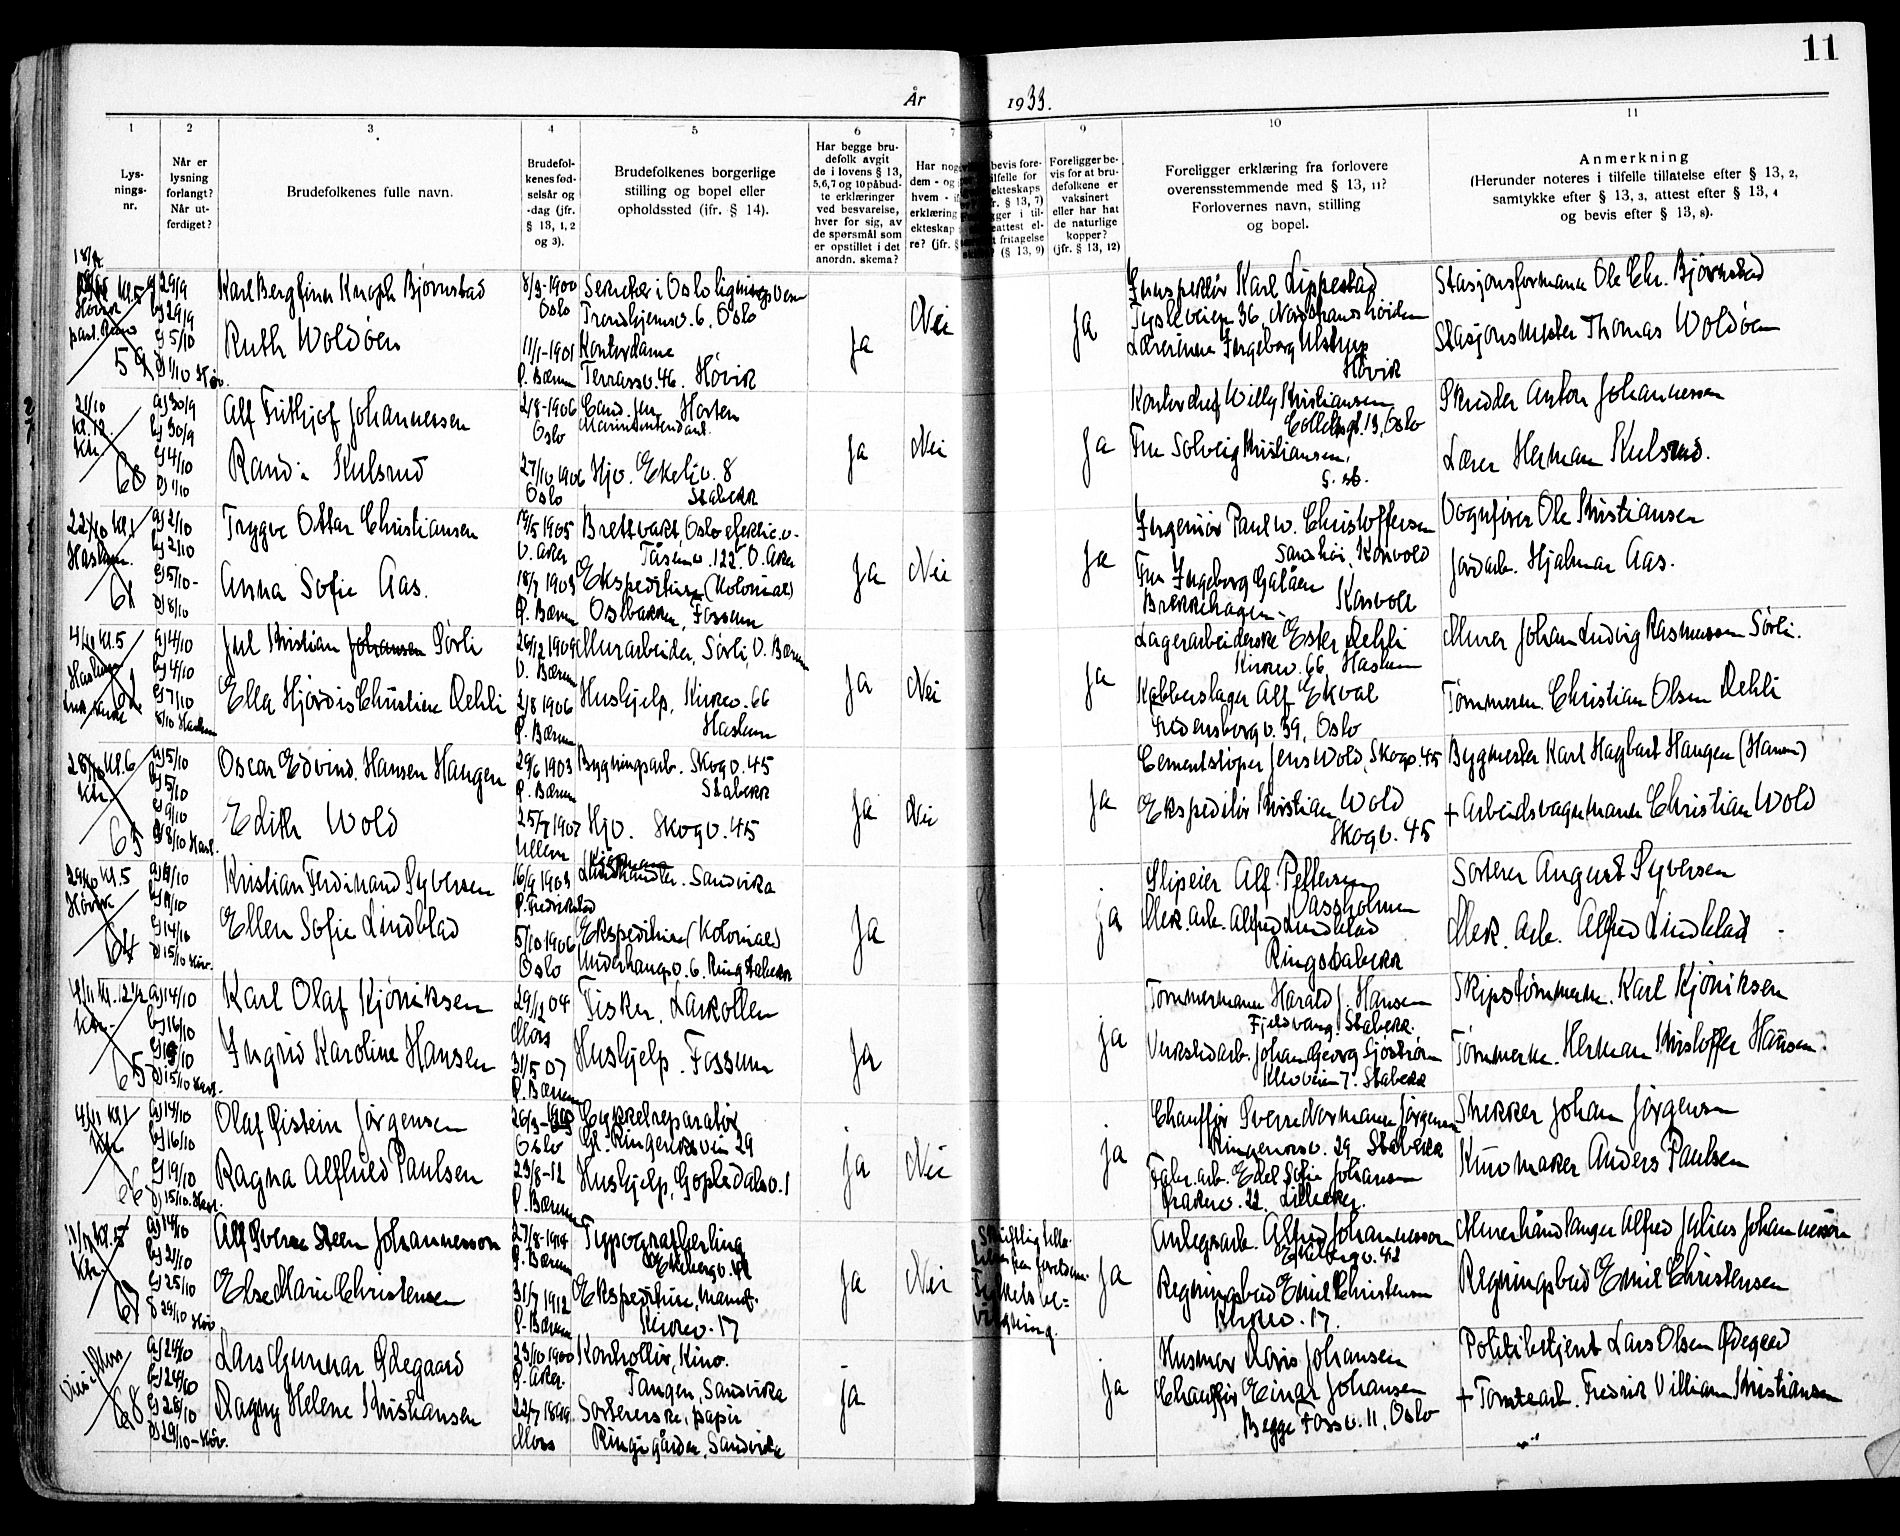 11
År 1933.
1
2
3
4
5
6
7
8
9
10
11
Lys-
nings-
nr.
Når er
lysning
forlangt?
Når ut-
ferdiget?
Brudefolkenes fulle navn.
Brudefol-
kenes fød-
selsår og
-dag (jfr.
§ 13, 1, 2
og 3).
Brudefolkenes borgerlige
stilling og bopel eller
opholdssted (ifr. § 14).
Har begge bru-
defolk avgit
de i lovens § 13,
5,6,7 og 10 påbud-
te erklæringer
ved besvarelse,
hver for sig, av
de spørsmål som
er opstillet i det
anordn. skema?
Har nogen
dem - og
hvem - i
erklæring
ekteskap
re? (jfr. §
bevis fore-
tilfelle for
ekteskaps
fr. § 13, 7)
gger i til-
eattest el-
t fritagelse
? (§ 13, 9)
Foreligger be-
vis for at bru-
defolkene er
vaksinert
eller har hat
de naturlige
kopper?
(jfr. § 13, 12)
Foreligger erklæring fra forlovere
overensstemmende med § 13, 11?
Forlovernes navn, stilling
og bopel.
Anmerkning
(Herunder noteres i tilfelle tillatelse efter § 13, 2,
samtykke efter § 13, 3, attest efter § 13, 4
og bevis efter § 13, 8).
59
a) 29/9
b) 29/9
c) 5/10
d) 1/10 Høv.
Karl Bergfinn Knoph Bjørnstad
Ruth Woldøen
8/3-1900
Oslo
11/1-1901
Ø. Bærum
Sekretær i Oslo ligningsvesen
Trondhjemsv. 6, Oslo
Kontordame
Terrassv. 46. Høvik
Ja
Nei
Ja
Inspektør Karl Lippestad
36, Nordstrandshøiden
Lærerinne Ingeborg Ulstrup
Høvik
Stasjonsformann Ole Chr. Bjørnstad
Stasjonsmester Thomas Woldøen
21/10
Kl. 12
60
a) 30/9
b) 30/9
c) 4/10
d) 1/10
Alf Frithjof Johannessen
Randi Kulsrud
2/8-1906
Oslo
27/10 1906
Oslo
Cand. jur. Horten
Hjv. Ekeliv. 8
Stabekk
Ja
Nei
Ja
Kontorchef Willy Kristiansen
Colletsgt. 13, Oslo
Fru Solveig Kristiansen,
s. st.
Skredder Anton Johannessen
Lærer Herman Kulsrud.
22/10 Kl. 1
Haslum.
61
a) 2/10
b) 2/10
c) 5/10-
d) 8/10
Trygve Ottar Christiansen
Anna Sofie Aas.
19/5 1905
V. Aker
18/7 1903
Ø. Bærum
Brettvakt, Oslo elektr. v.
Tåsenv. 122. V. Aker
Ekspeditrise (Kolonial)
Ostbakken, Fossum
Ja
Nei
Ja
Ingeniør Paul W. Christoffersen
Korsvold
Fru Ingeborg Galåen
Brekkehagen. Korsvoll
Vognfører Ole Kristiansen
Jordarb. Hjalmar Aas.
Kl. 5
Haslum
62
a) 4/10
b) 4/10
c) 7/10
8/10 Haslum
Jul Kristian Johansen Sørli
Ella Hjørdis Christine Dehli
26/12 1909
V. Bærum
2/8 1906
Ø. Bærum
Murarbeider, Sørli, V. Bærum
Hushjelp, Kirkev. 66
Haslum
Ja
Nei
Ja
Lagerarbeiderske Ester Dehli
Kirkev. 66 Haslum
Kobberslager Alf Ekval
Fredensborgv. 39, Oslo
Murer Johan Ludvig Rasmussen Sørli.
Tømmerm. Christian Olsen Dehli
28/10 Kl. 6
63
a) 5/10
b) 5/10
c) 9/10
d) 8/10 Hasl.
Oscar Edvind Hansen Haugen
Edith Wold
29/6 1903
Ø. Bærum
25/7 1907
Ullern
Bygningsarb. Skogv. 45
Stabekk
Hjv. Skogv. 45
Ja
Nei
Ja
Cementstøper Jens Wold, Skogv. 45
Ekspeditør Kristian Wold
Skogv. 45
Bygmester Karl Hagbart Haugen (Hansen)
+ Arbeidsvognmann Christian Wold
29/10 Kl. 5
Høvik
64
c) 14/10
d) 15/10 Høv.
Kristian Ferdinand Syversen
Ellen Sofie Lindblad
16/9 1903
Ø. Fredrikstad
5/10 1906
Oslo
Sandvika
Ekspeditrise (Kolonial)
Underhaugsv. 6. Ringstabekk
Ja
ja
Slipeier Alf Pettersen
Vassholmen
Mek. Arb. Alfred Lindblad
Ringstabekk
Sorterer August Syversen
Mek. Arb. Alfred Lindblad
4/11 Kl. 12 1/2
65
a) 14/10
b) 16/10
c) 19/10
d) 15/10 Hasl.
Karl Olaf Kjöniksen
Ingrid Karoline Hansen
29/12 04
Moss
31/5 07
Ø. Bærum
Fisker. Larkollen
Hushjelp. Fossum
Ja
ja
Tømmermann Harald J. Hansen
Fjeldvang, Stabekk.
Verkstedarb. Johan Georg Sjöström
Kleivveien 7. Stabekk
Skipstømmerm. Karl Kjöniksen
Tømmerm. Herman Kristoffer Hansen.
4/11 Kl. 1
66
a) 14/10
b) 16/10
c) 19/10
d) 15/10. Hasl.
Olaf Øistein Jørgensen
Ragna Alfhild Paulsen
Oslo
23/8-12
Ø. Bærum
Cykkelreparatør
Gl. Ringeriksvei 29
Hushjelp, Gopledalsv. 1
ja
Nei
ja
Chauffør Sverre Normann Jørgensen
Ringeriksv. 29, Stabekk
Fabr. arb. Edel Sofie Johansen
22. Lilleaker.
Snekker Johan Jørgensen
Skomaker Anders Paulsen
67
a) 14/10
b) 21/10
c) 25/10
29/10 Høv.
Alf Sverre Steen Johannesson
Else Marie Christensen
Ø. Bærum
31/7 1912
Ø. Bærum
Typograflærling
Ekspeditrise, manuf.
Kirkev. 17
Ja
Nei
Ja
Anlegsarb. Alfred Johannesson
Ekebergv. 42
Regningsbud Emil Christensen
Kirkev. 17.
Murerhåndlanger Alfred Julius Johannesson
Regningsbud Emil Christensen
Vies i Moss
68
a) 24/10
b) 24/10
c) 28/10
d) 29/10-Høv.
Lars Gunnar Ødegaard
Dagny Helene Kristiansen
23/10 1900
Ø. Aker
Moss
Kontrollør, Kino.
Tangen, Sandvika
Sortererske, papir
Ringigården, Sandvika
ja
ja
Husmor Doris Johansen
Chauffør Einar Johansen
Begge Fossv. 11, Oslo
Politibetjent Lars Olsen Ødegård
+ Tomtearb. Fredrik Villiam Kristiansen